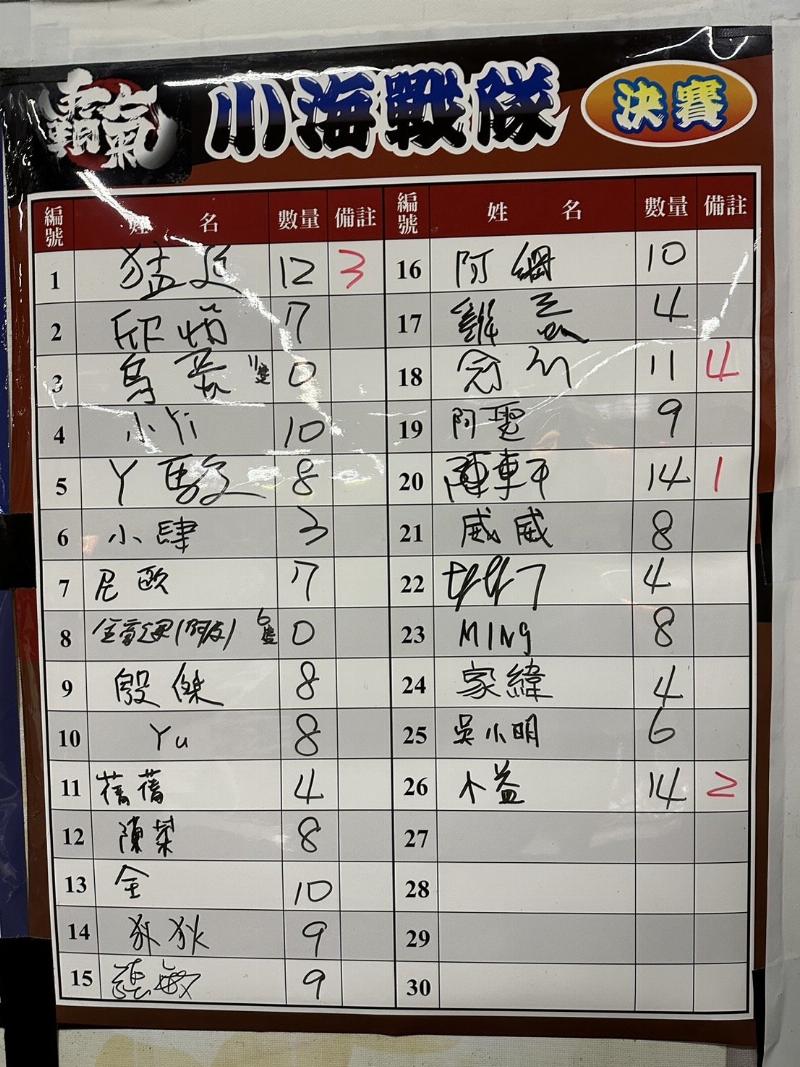 霸氣 小海戰隊 決賽
編號 姓名 數量 備註 編號 姓名 數量 備註
1 猛 12 3 16 阿綱 10
2 欣怡 7 17 雞 4
3 烏 11隻 0 18 11 4
4 小Yi 10 19 阿聖 9
5 丫駿 8 20 陣車干 14 1
6 小肆 3 21 威威 8
7 尼歐 7 22 4
8 (阿友) 6隻 0 23 MINg 8
9 殷傑 8 24 家緯 4
10 Yu 8 25 吳小明 6
11 蓓蓓 4 26 小益 14 2
12 陳葉 8 27
13 全 10 28
14 狄狄 9 29
15 敏 9 30